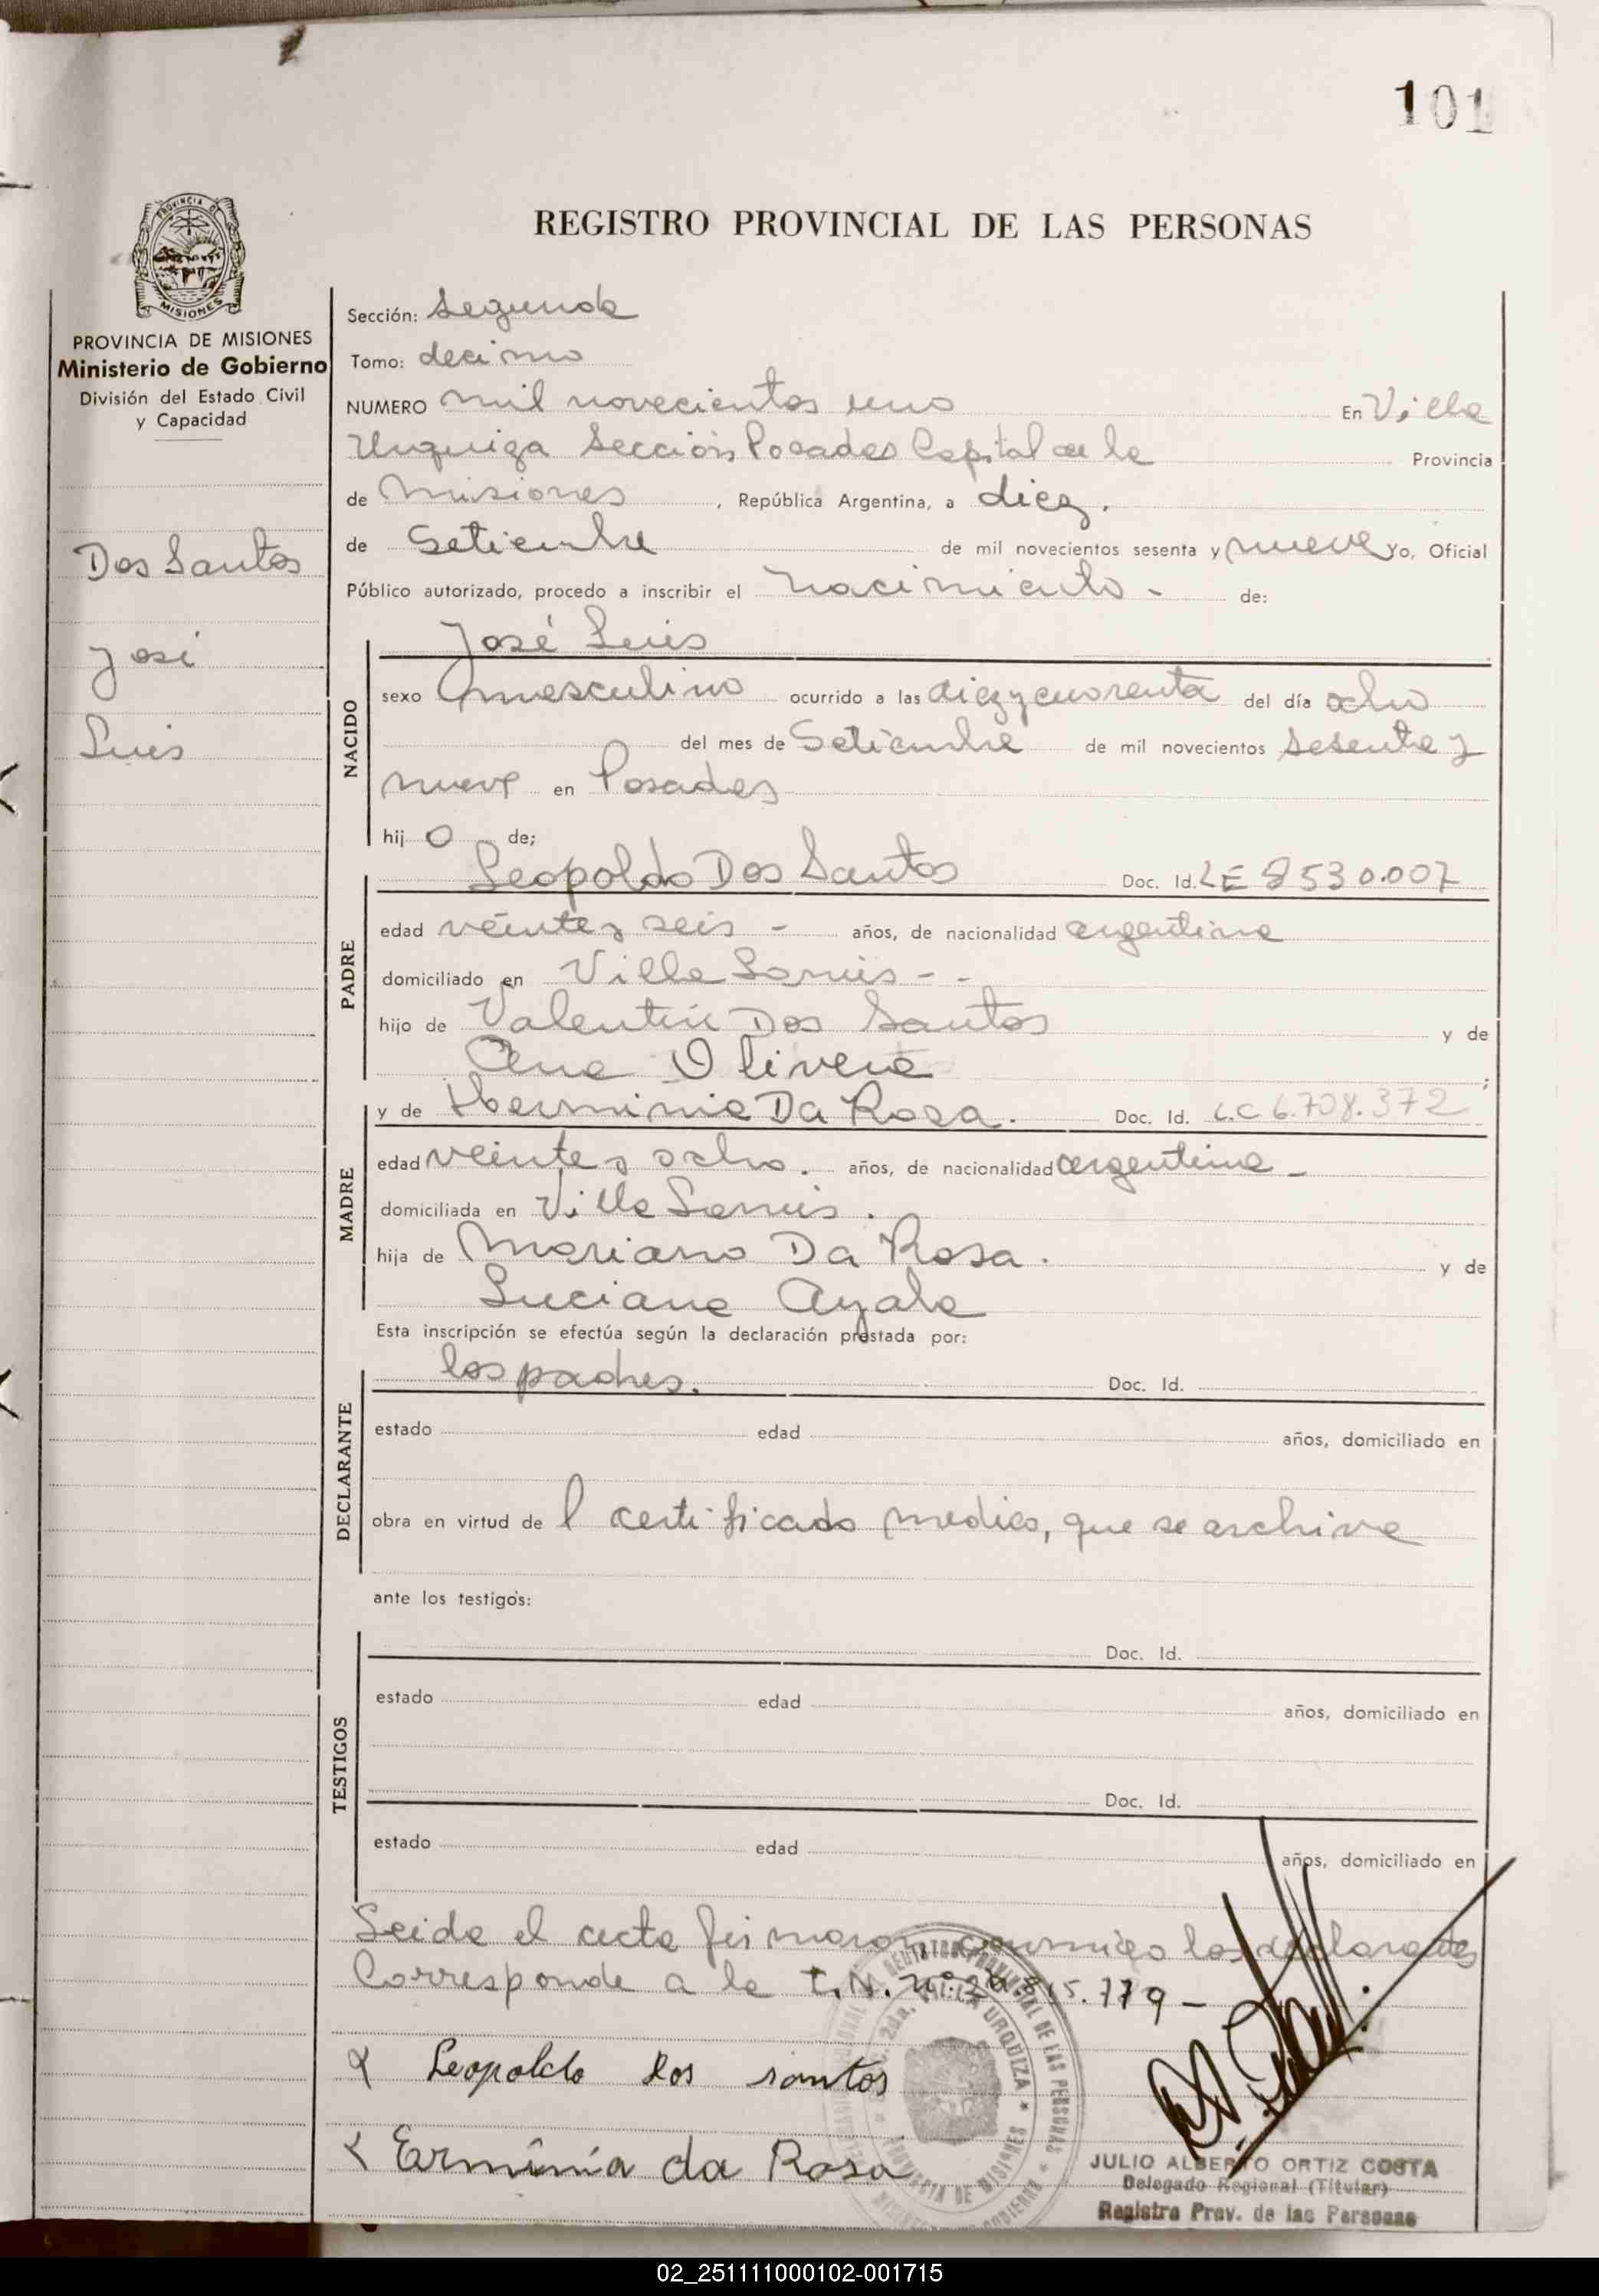 101
REGISTRO PROVINCIAL DE LAS PERSONAS
PROVINCIA DE
MISIONES
PROVINCIA DE MISIONES
Ministerio de Gobierno
División del Estado Civil
y Capacidad
Dos Santos
José
Luis
Sección: Segunda
Tomo: decimo
NUMERO mil novecientos uno En Villa
Urquiza Sección Posadas Capital de la Provincia
de Misiones , República Argentina, a diez.
de Setiembre de mil novecientos sesenta y nueve Yo, Oficial
Público autorizado, procedo a inscribir el nacimiento - de:
José Luis
NACIDO
sexo masculino ocurrido a las diez y cuarenta del día ocho
del mes de Setiembre de mil novecientos sesenta y
nueve en Posadas
hij o de;
Leopoldo Dos Santos Doc. Id. LE 8530.007
PADRE
edad veinte y seis - años, de nacionalidad argentina
domiciliado en Villa Lanus - -
hijo de Valentin Dos Santos y de
Ana Olivera ;
y de Herminia Da Rosa. Doc. Id. L.C 6.708.372
MADRE
edad veinte y ocho. años, de nacionalidad argentina -
domiciliada en Villa Lanus.
hija de Mariano Da Rosa. y de
Luciana Ayala
Esta inscripción se efectúa según la declaración prestada por:
los padres. Doc. Id.
DECLARANTE
estado edad años, domiciliado en
obra en virtud de l certificado medico, que se archiva
ante los testigos:
Doc. Id.
TESTIGOS
estado edad años, domiciliado en
Doc. Id.
estado edad años, domiciliado en
Leida el acta firmaron conmigo los declarantes
Corresponde a la L.N. nº: 20.815.779 -
Leopoldo dos santos
Erminia da Rosa
REGISTRO PROVINCIAL DE LAS PERSONAS
2da. VILLA URQUIZA
PROVINCIA DE MISIONES
JULIO ALBERTO ORTIZ COSTA
Delegado Regional (Titular)
Registro Prov. de las Personas
02_251111000102-001715